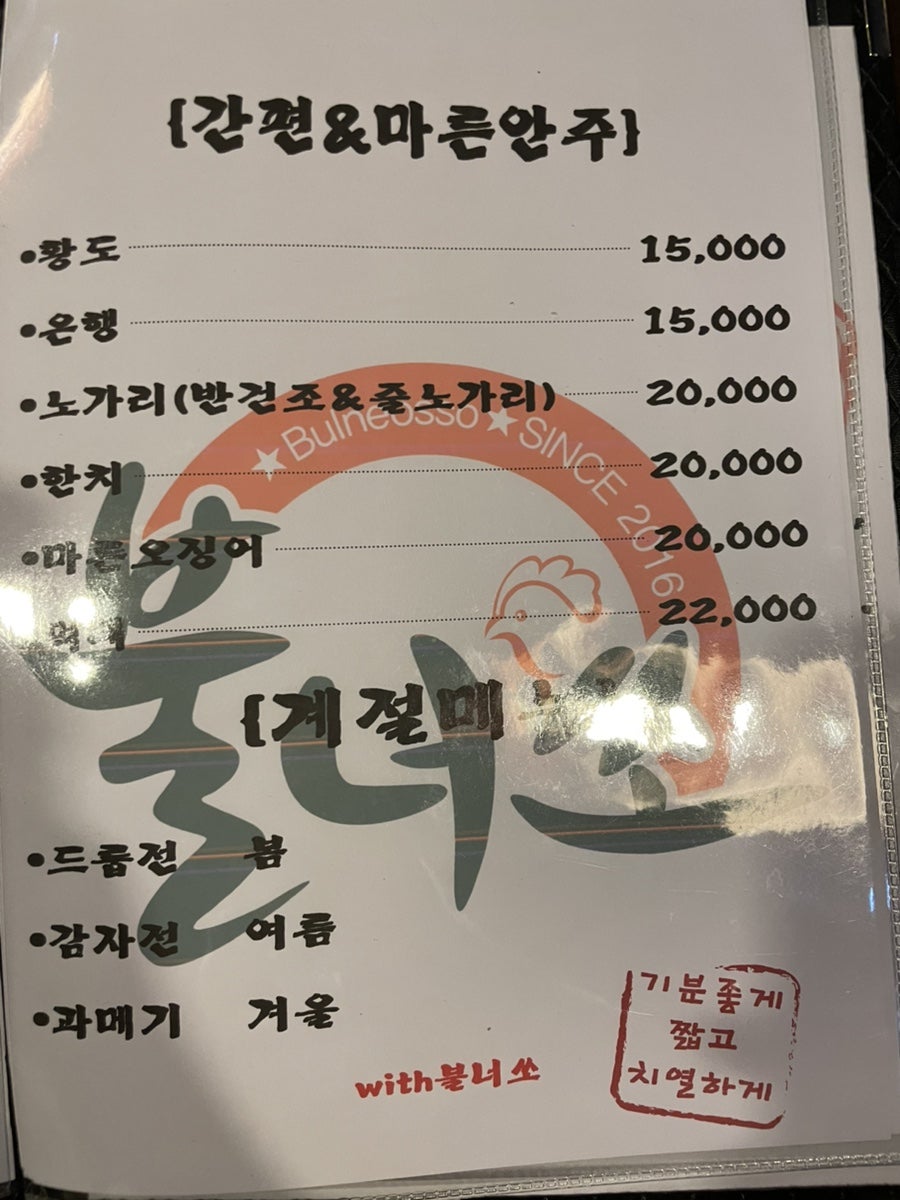 {간편&마른안주}
•황도 15,000
•은행 15,000
•노가리(반건조&줄노가리) 20,000
•한치 20,000
•마른오징어 20,000
22,000
★Bulneosso★SINCE 2016
불너쏘
{계절메
•드룹전 봄
•감자전 여름
•과메기 겨울
with불너쏘
기분좋게
짧고
치열하게